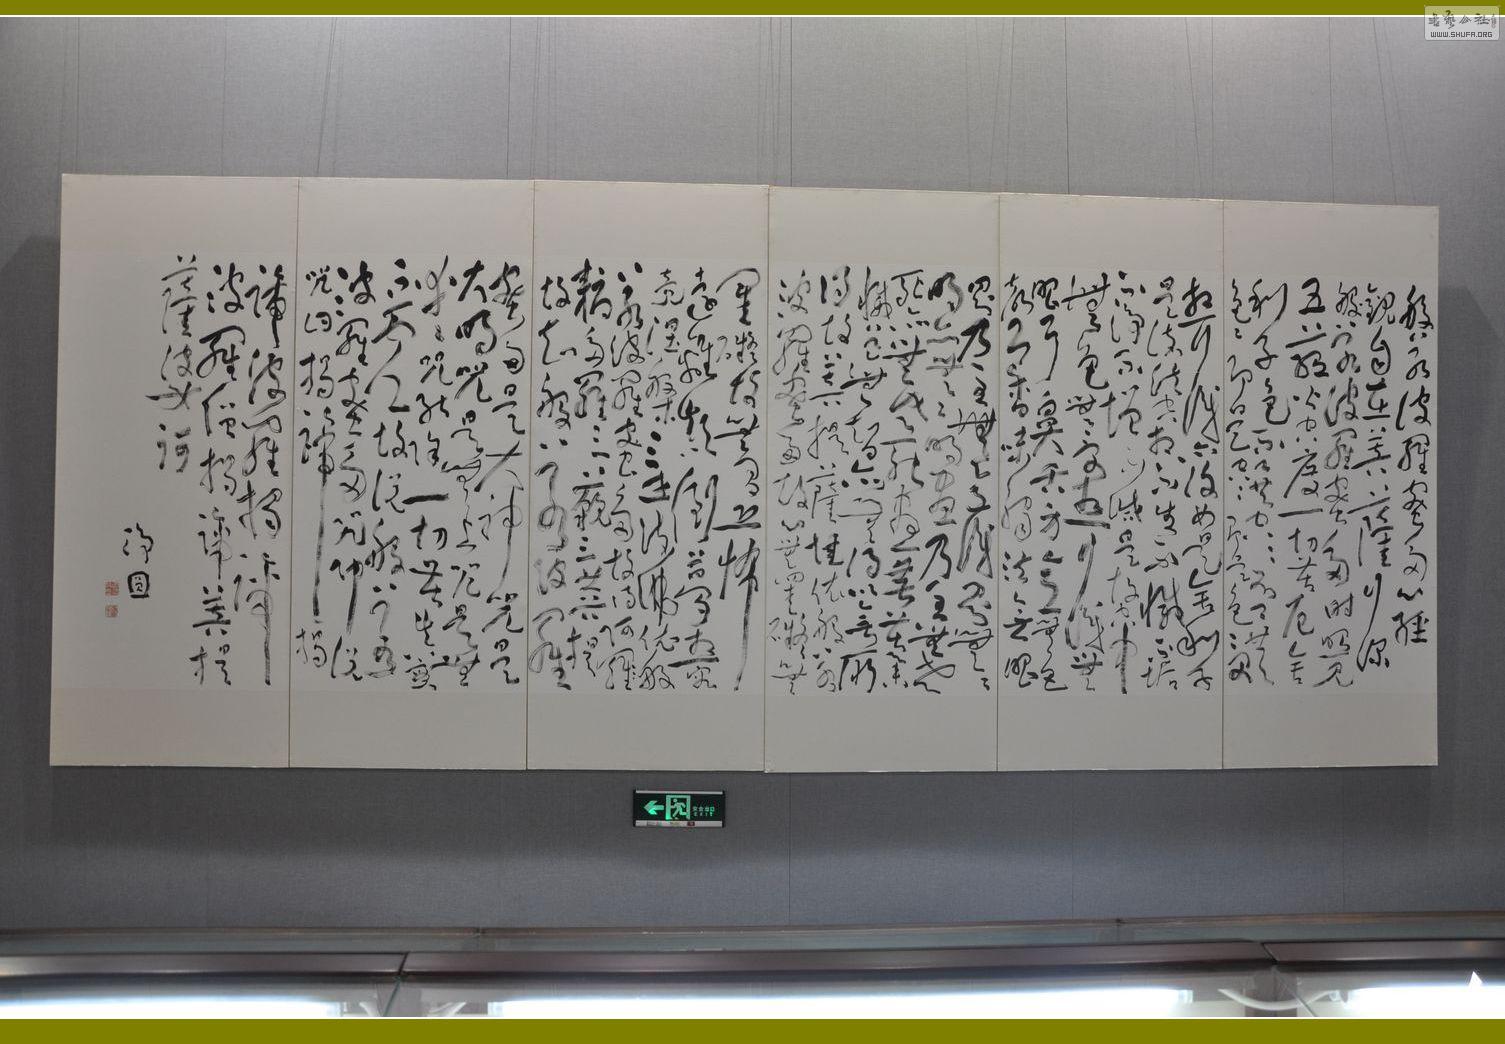 般若波羅蜜多心經
觀自在菩薩行深
般若波羅蜜多時照見
五蘊皆空度一切苦厄舍
利子色不異空空不異
色色即是空空即是色受
想行識亦復如是舍利子
是諸法空相不生不滅不垢
不淨不增不減是故空中
無色無受想行識無
眼耳鼻舌身意無色
聲香味觸法無眼
界乃至無意識界無無
明亦無無明盡乃至無老
死亦無老死盡無苦集
滅道無智亦無得以無所
得故菩提薩埵依般若
波羅蜜多故心無罣礙無
罣礙故無有恐怖
遠離顛倒夢想究
竟涅槃三世諸佛依般
若波羅蜜多故得阿
耨多羅三藐三菩提
故知般若波羅
蜜多是大神咒是
大明咒是無上咒是無
等等咒能除一切苦真實
不虛故說般若
波羅蜜多咒即說
咒曰揭諦揭
諦波羅揭諦
波羅僧揭諦菩提
薩婆訶
安全出口
EXIT
书艺公社
WWW.SHUFA.ORG